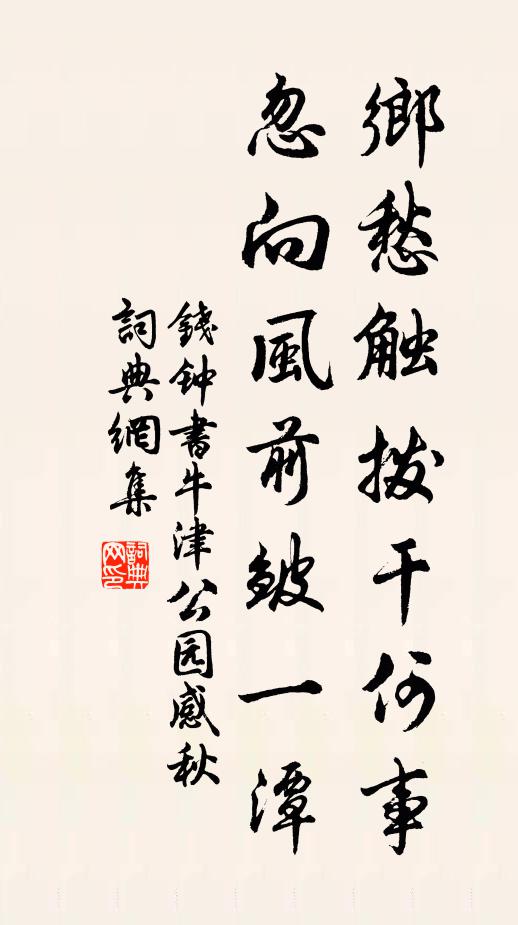 鄉愁触撥干何事
忽向風前皴一潭
錢钟書牛津公园感秋
詞典網集
詞典网印